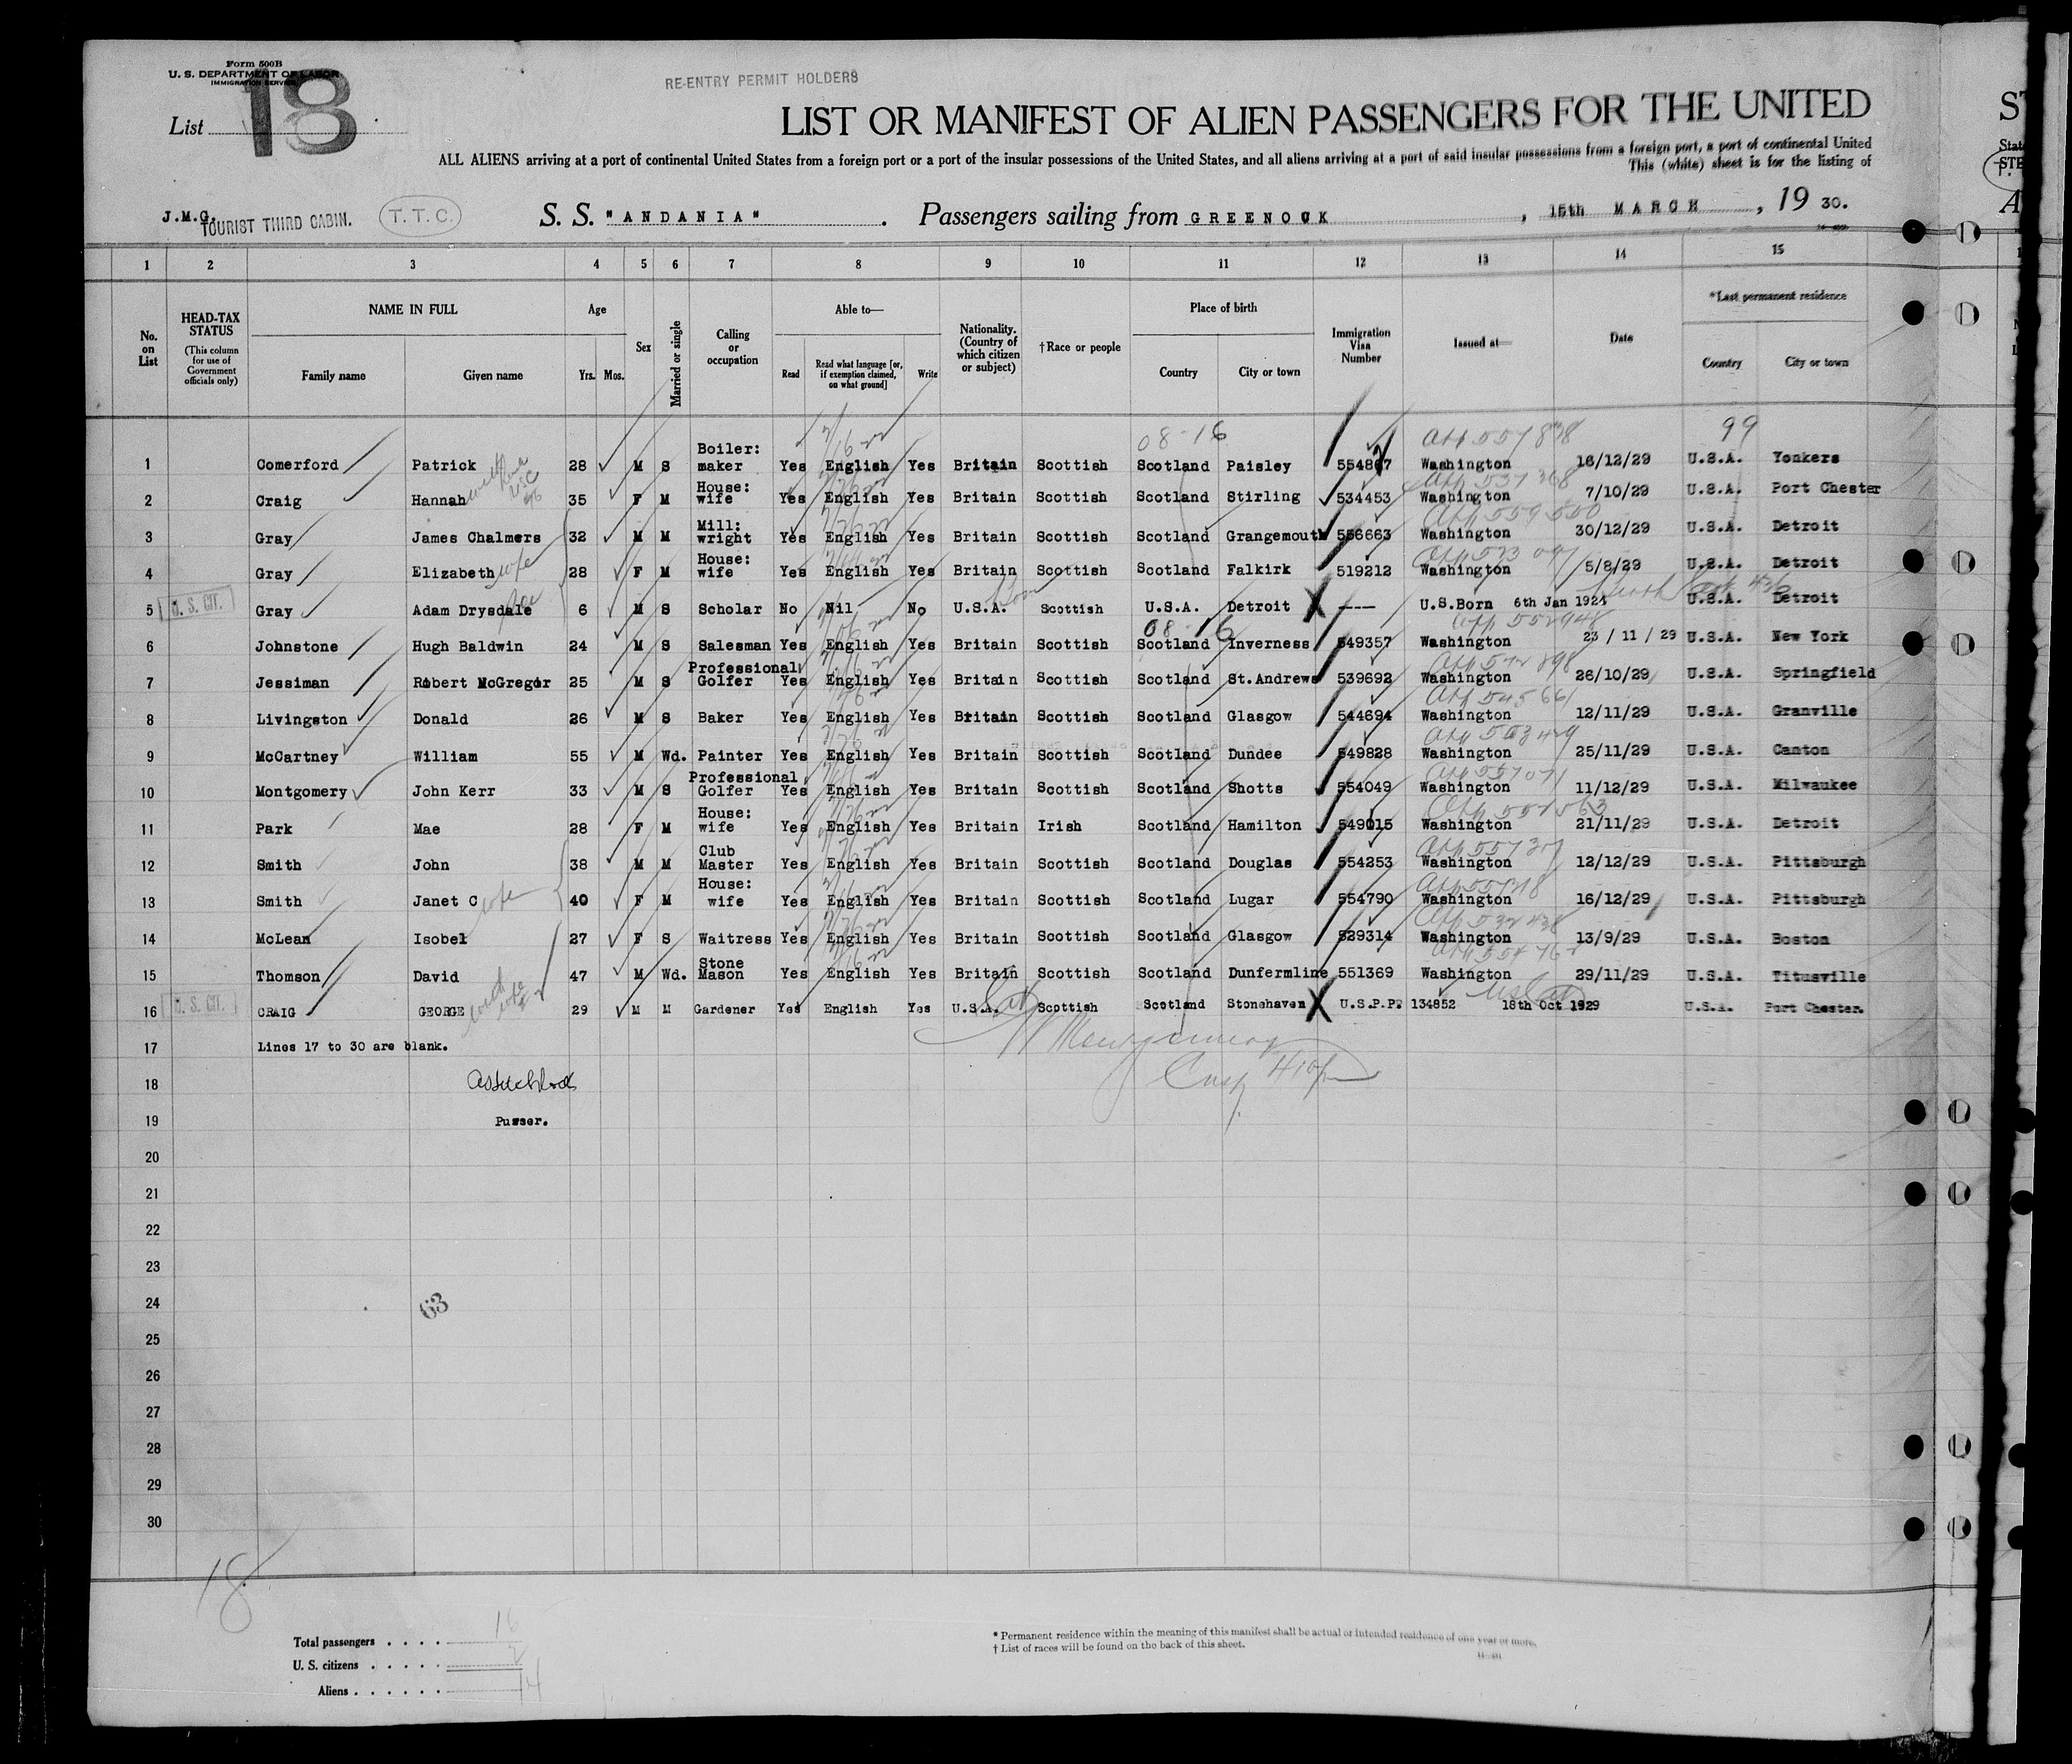 Form 500B
U. S. DEPARTMENT OF LABOR
IMMIGRATION SERVICE
RE-ENTRY PERMIT HOLDERS
List 18
LIST OR MANIFEST OF ALIEN PASSENGERS FOR THE UNITED
ALL ALIENS arriving at a port of continental United States from a foreign port or a port of the insular possessions of the United States, and all aliens arriving at a port of said insular possessions from a foreign port, a port of continental United
This (white) sheet is for the listing of
J.M.G. TOURIST THIRD CABIN. T.T.C. S. S. "ANDANIA" . Passengers sailing from GREENOCK , 15th MARCH , 19 30.
1 2 3 4 5 6 7 8 9 10 11 12 13 14 15
No. on List
HEAD-TAX STATUS (This column for use of Government officials only)
NAME IN FULL Family name Given name
Age Yrs. Mos.
Sex
Married or single
Calling or occupation
Able to— Read Read what language [or, if exemption claimed, on what ground] Write
Nationality. (Country of which citizen or subject)
†Race or people
Place of birth Country City or town
Immigration Visa Number
Issued at—
Date
*Last permanent residence Country City or town
08-16 99
1 Comerford Patrick 28 M S Boiler: maker Yes English Yes Britain Scottish Scotland Paisley 554867 Washington 16/12/29 U.S.A. Yonkers
2 Craig Hannah 35 F M House: wife Yes English Yes Britain Scottish Scotland Stirling 534453 Washington 7/10/29 U.S.A. Port Chester
3 Gray James Chalmers 32 M M Mill: wright Yes English Yes Britain Scottish Scotland Grangemouth 556663 Washington 30/12/29 U.S.A. Detroit
4 Gray Elizabeth wife 28 F M House: wife Yes English Yes Britain Scottish Scotland Falkirk 519212 Washington 5/8/29 U.S.A. Detroit
U. S. CIT. 5 Gray Adam Drysdale 6 M S Scholar No Nil No U.S.A. Scottish U.S.A. Detroit X ---- U.S.Born 6th Jan 1924 U.S.A. Detroit
08-16
6 Johnstone Hugh Baldwin 24 M S Salesman Yes English Yes Britain Scottish Scotland Inverness 549357 Washington 23 / 11 / 29 U.S.A. New York
7 Jessiman Robert McGregor 25 M S Professional Golfer Yes English Yes Britain Scottish Scotland St.Andrews 539692 Washington 26/10/29 U.S.A. Springfield
8 Livingston Donald 26 M S Baker Yes English Yes Britain Scottish Scotland Glasgow 544694 Washington 12/11/29 U.S.A. Granville
9 McCartney William 55 M Wd. Painter Yes English Yes Britain Scottish Scotland Dundee 549828 Washington 25/11/29 U.S.A. Canton
10 Montgomery John Kerr 33 M S Professional Golfer Yes English Yes Britain Scottish Scotland Shotts 554049 Washington 11/12/29 U.S.A. Milwaukee
11 Park Mae 28 F M House: wife Yes English Yes Britain Irish Scotland Hamilton 549015 Washington 21/11/29 U.S.A. Detroit
12 Smith John 38 M M Club Master Yes English Yes Britain Scottish Scotland Douglas 554253 Washington 12/12/29 U.S.A. Pittsburgh
13 Smith Janet C wife 40 F M House: wife Yes English Yes Britain Scottish Scotland Lugar 554790 Washington 16/12/29 U.S.A. Pittsburgh
14 McLean Isobel 27 F S Waitress Yes English Yes Britain Scottish Scotland Glasgow 529314 Washington 13/9/29 U.S.A. Boston
15 Thomson David 47 M Wd. Stone Mason Yes English Yes Britain Scottish Scotland Dunfermline 551369 Washington 29/11/29 U.S.A. Titusville
U. S. CIT. 16 CRAIG GEORGE 29 M M Gardener Yes English Yes U.S.A. Scottish Scotland Stonehaven X U.S.P.PT 134852 18th Oct 1929 U.S.A. Port Chester.
17 Lines 17 to 30 are blank.
Montgomery
18
19 Purser.
20
21
22
23
24 63
25
26
27
28
29
30
18
Total passengers . . . . 16
U. S. citizens . . . . . 2
Aliens . . . . . . 14
* Permanent residence within the meaning of this manifest shall be actual or intended residence of one year or more.
† List of races will be found on the back of this sheet.